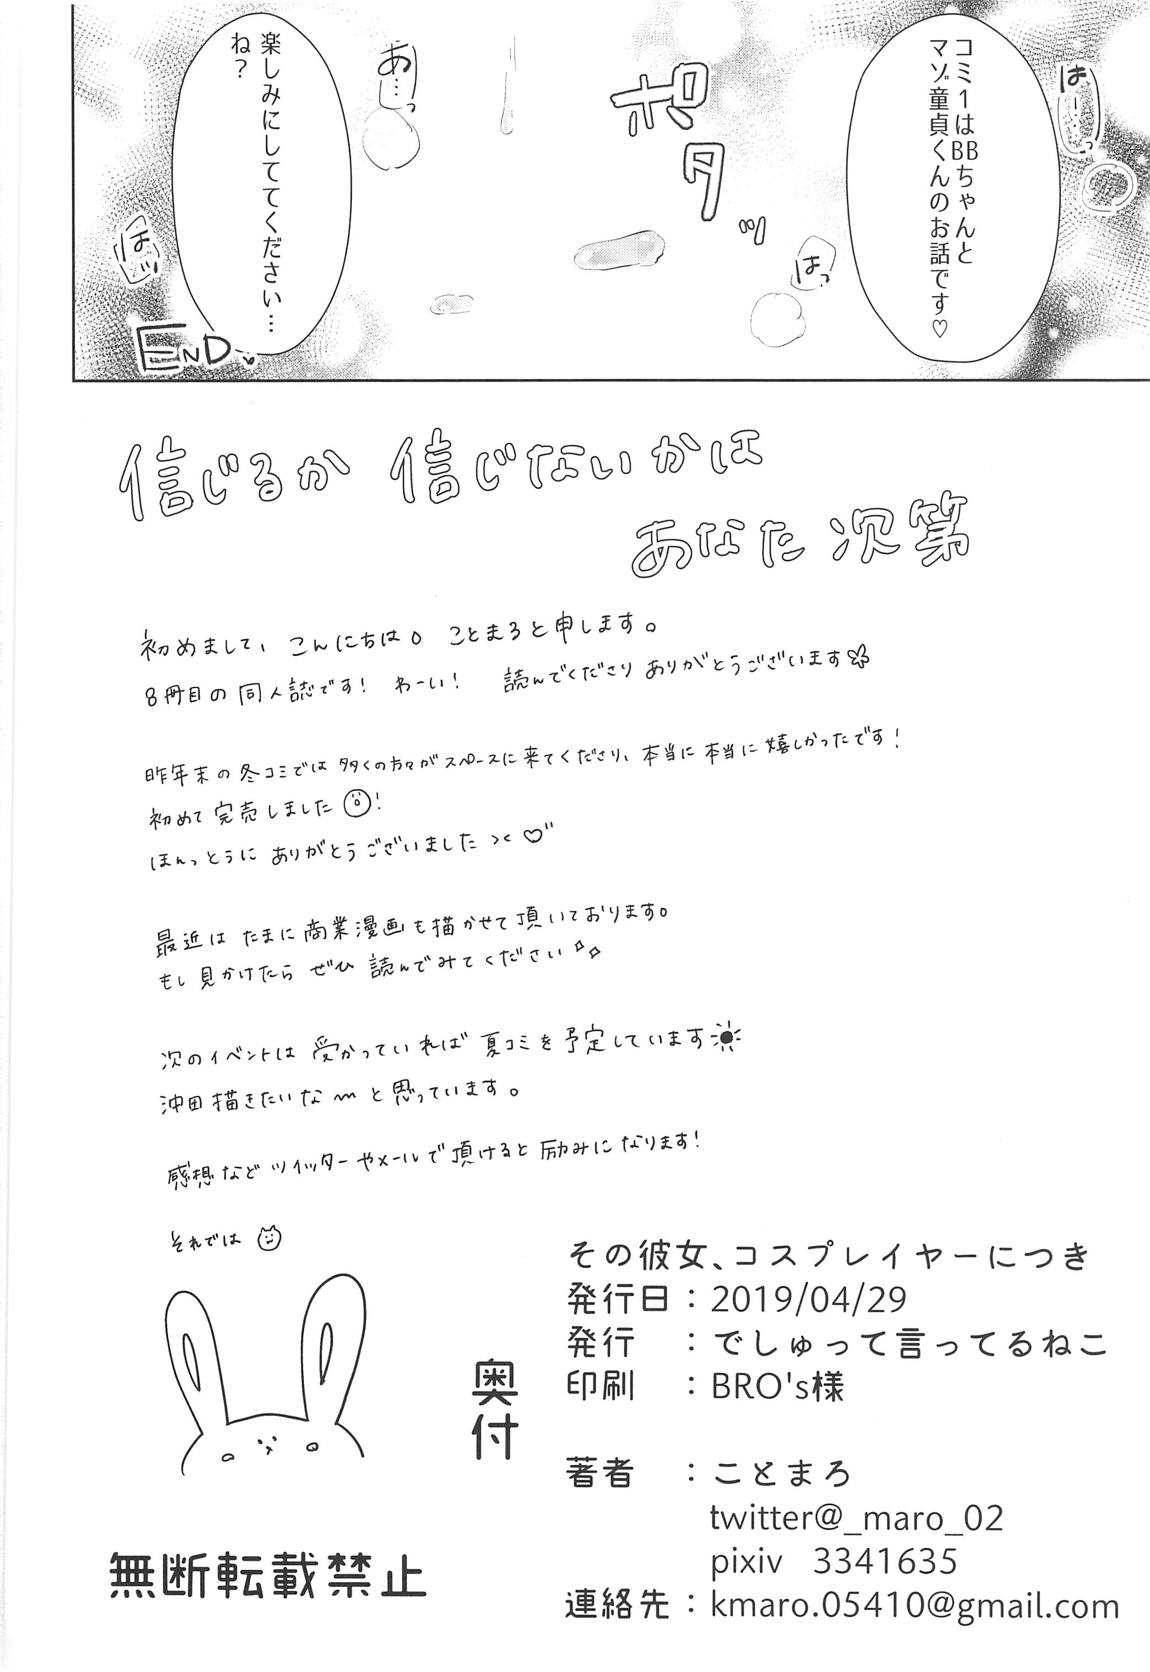 コミ1はBBちゃんと
マゾ童貞くんのお話です♡
はー…っ
ポタ
ッ
はっ
あ…っ
楽しみにしててください…
ね?
はぁ
END♥
信じるか 信じないかは
あなた次第
初めまして、こんにちは。ことまろと申します。
8冊目の同人誌です! わーい! 読んでくださりありがとうございます
昨年末の冬コミでは多くの方々がスペースに来てくださり、本当に本当に嬉しかったです!
初めて完売しました!
ほんっとうにありがとうございました ><♡"
最近はたまに商業漫画も描かせて頂いております。
もし見かけたらぜひ読んでみてください
次のイベントは受かっていれば夏コミを予定しています
沖田描きたいな〜と思っています。
感想などツイッターやメールで頂けると励みになります!
それでは
奥付
その彼女、コスプレイヤーにつき
発行日:2019/04/29
発行 :でしゅって言ってるねこ
印刷 :BRO's様
著者 :ことまろ
twitter@_maro_02
pixiv 3341635
連絡先:kmaro.05410@gmail.com
無断転載禁止